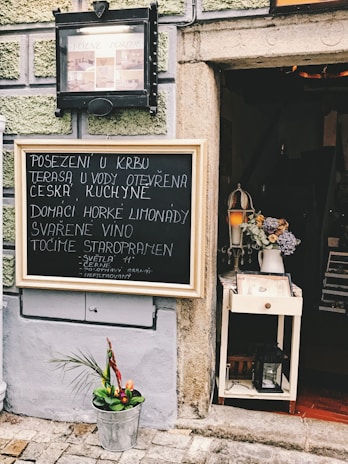 POSEZENÍ U KRBU
TERASA U VODY OTEVŘENA
ČESKÁ KUCHYNĚ
DOMÁCÍ HORKÉ LIMONÁDY
SVAŘENÉ VÍNO
TOČÍME STAROPRAMEN
- SVĚTLÁ 11°
- ČERNÉ
- NEFILTROVANÝ